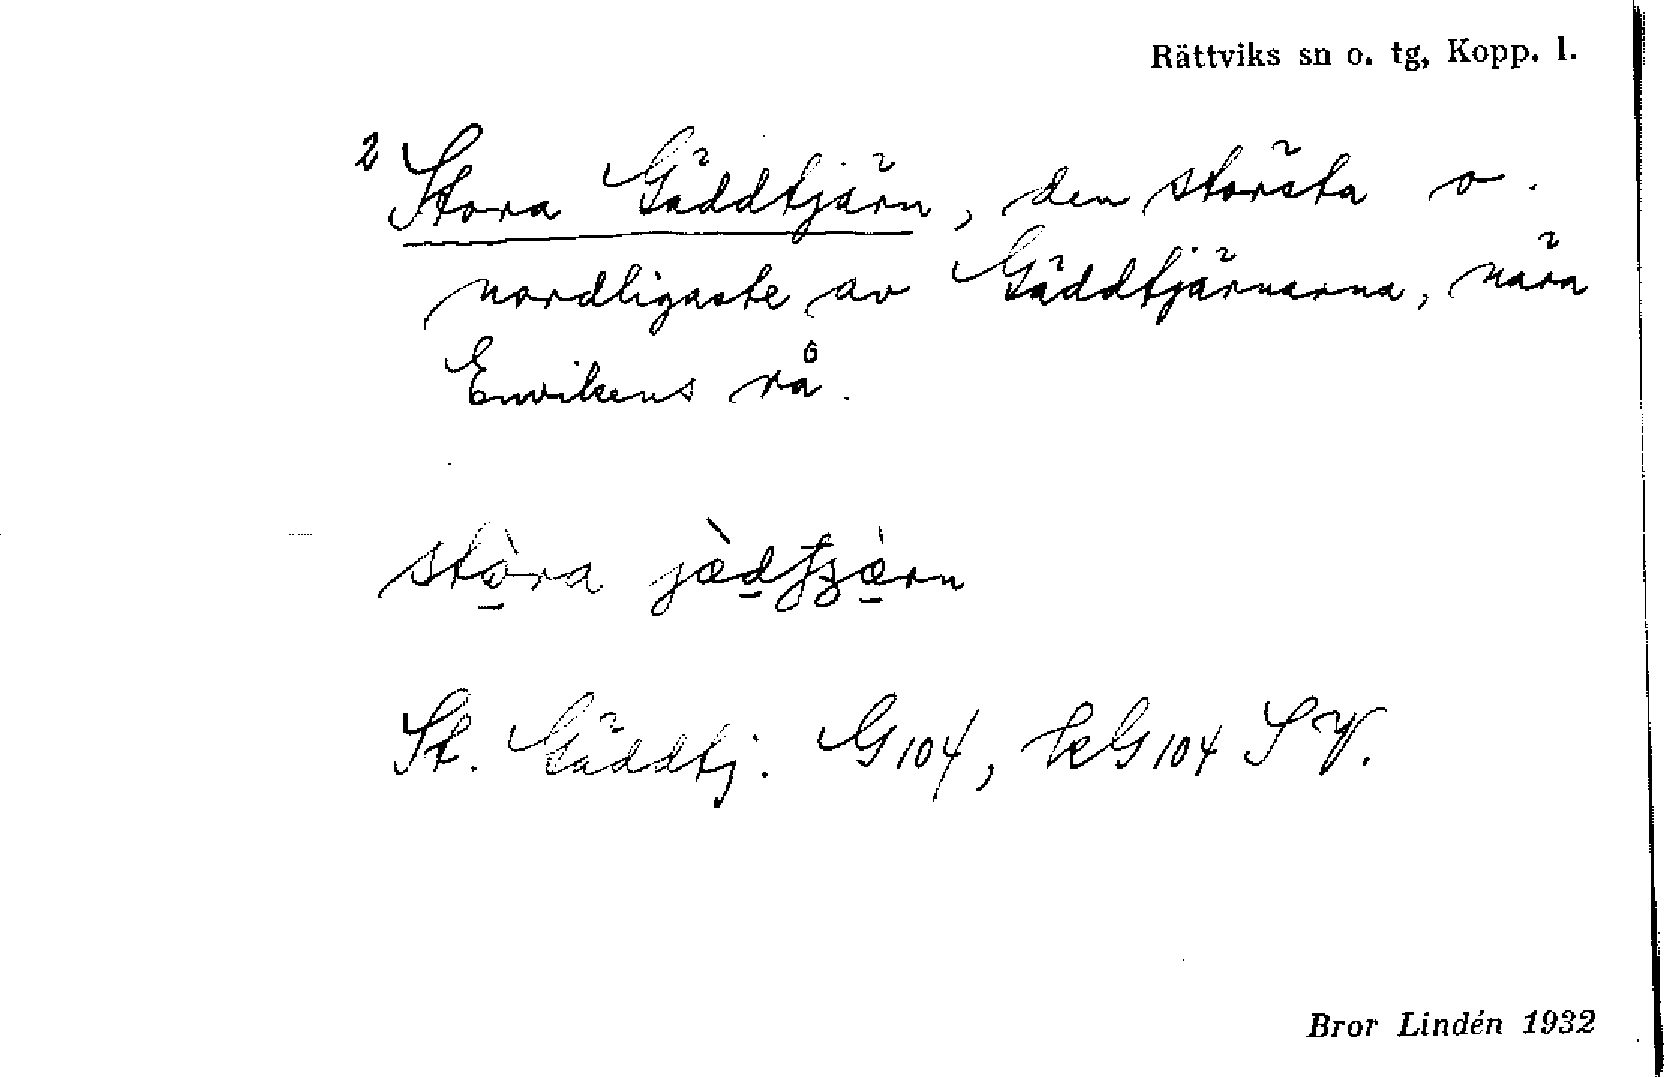 Rättviks sn o. tg, Kopp. l.
2 Stora Gäddtjärn, den största o.
nordligaste av Gäddtjärnarna, nära
Envikens rå.
stòra
St. Gäddtj. G104, hkG104 SV.
Bror Lindén 1932